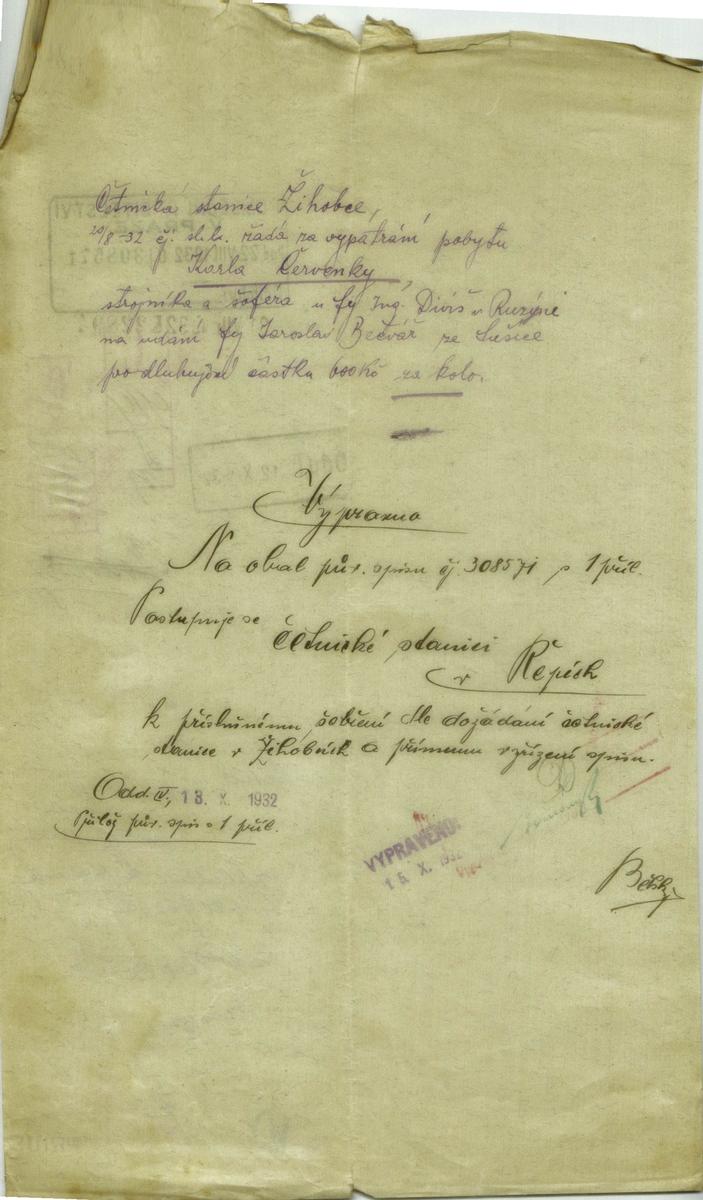 Četnická stanice Žihobce,
20/8-32 čj. sl. h. žádá za vypátrání pobytu
Karla Červenky,
strojníka a šoféra u fy Ing. Diviš v Ruzyni
na udání fy Jaroslav Bečvář ze Sušice
pro dlužnou částku 600 Kč za kolo.
Výpravna
Na obal pův. spisu čj. 308571 s 1 příl.
Postupuje se
četnické stanici
v Řepích
k příslušnému šetření dle dožádání četnické
stanice v Žihobcích a přímému vyřízení spisu.
Odd. IV, 13. X. 1932
Přilož pův. spis o 1 příl.
VYPRAVENO
15. X. 1932